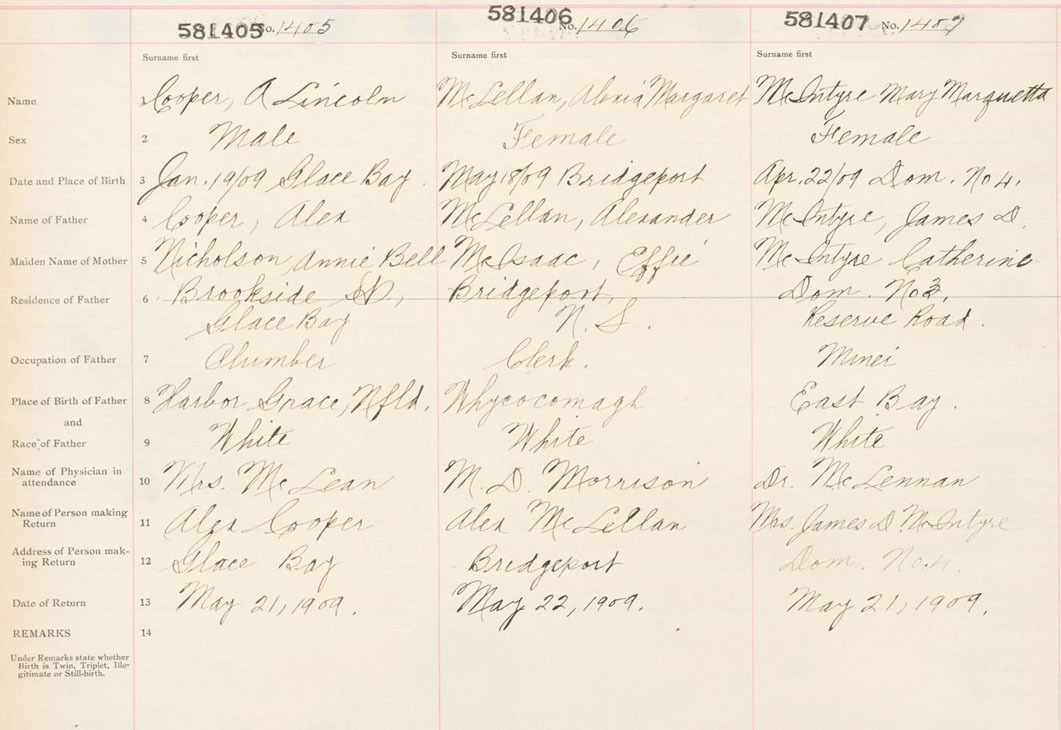 581405 No. 1405 581406 No. 1406 581407 No. 1407
Surname first Surname first Surname first
Name 1 Cooper, A Lincoln McLellan, Alexia Margaret McIntyre Mary Marquetta
Sex 2 Male Female Female
Date and Place of Birth 3 Jan. 19/09 Glace Bay. May 18/09 Bridgeport Apr. 22/09 Dom. No 4.
Name of Father 4 Cooper, Alex McLellan, Alexander McIntyre, James D.
Maiden Name of Mother 5 Nicholson Annie Bell McIsaac, Effie McIntyre Catherine
Residence of Father 6 Brookside St., Bridgeport, Dom. No 3.
Glace Bay N. S. Reserve Road.
Occupation of Father 7 Plumber Clerk. Miner
Place of Birth of Father 8 Harbor Grace, Nfld. Whycocomagh East Bay.
and
Race of Father 9 White White White
Name of Physician in
attendance 10 Mrs. McLean M. D. Morrison Dr. McLennan
Name of Person making
Return 11 Alex Cooper Alex McLellan Mrs. James D McIntyre
Address of Person mak-
ing Return 12 Glace Bay Bridgeport Dom. No. 4.
Date of Return 13 May 21, 1909. May 22, 1909. May 21, 1909.
REMARKS 14
Under Remarks state whether
Birth is Twin, Triplet, Ille-
gitimate or Still-birth.